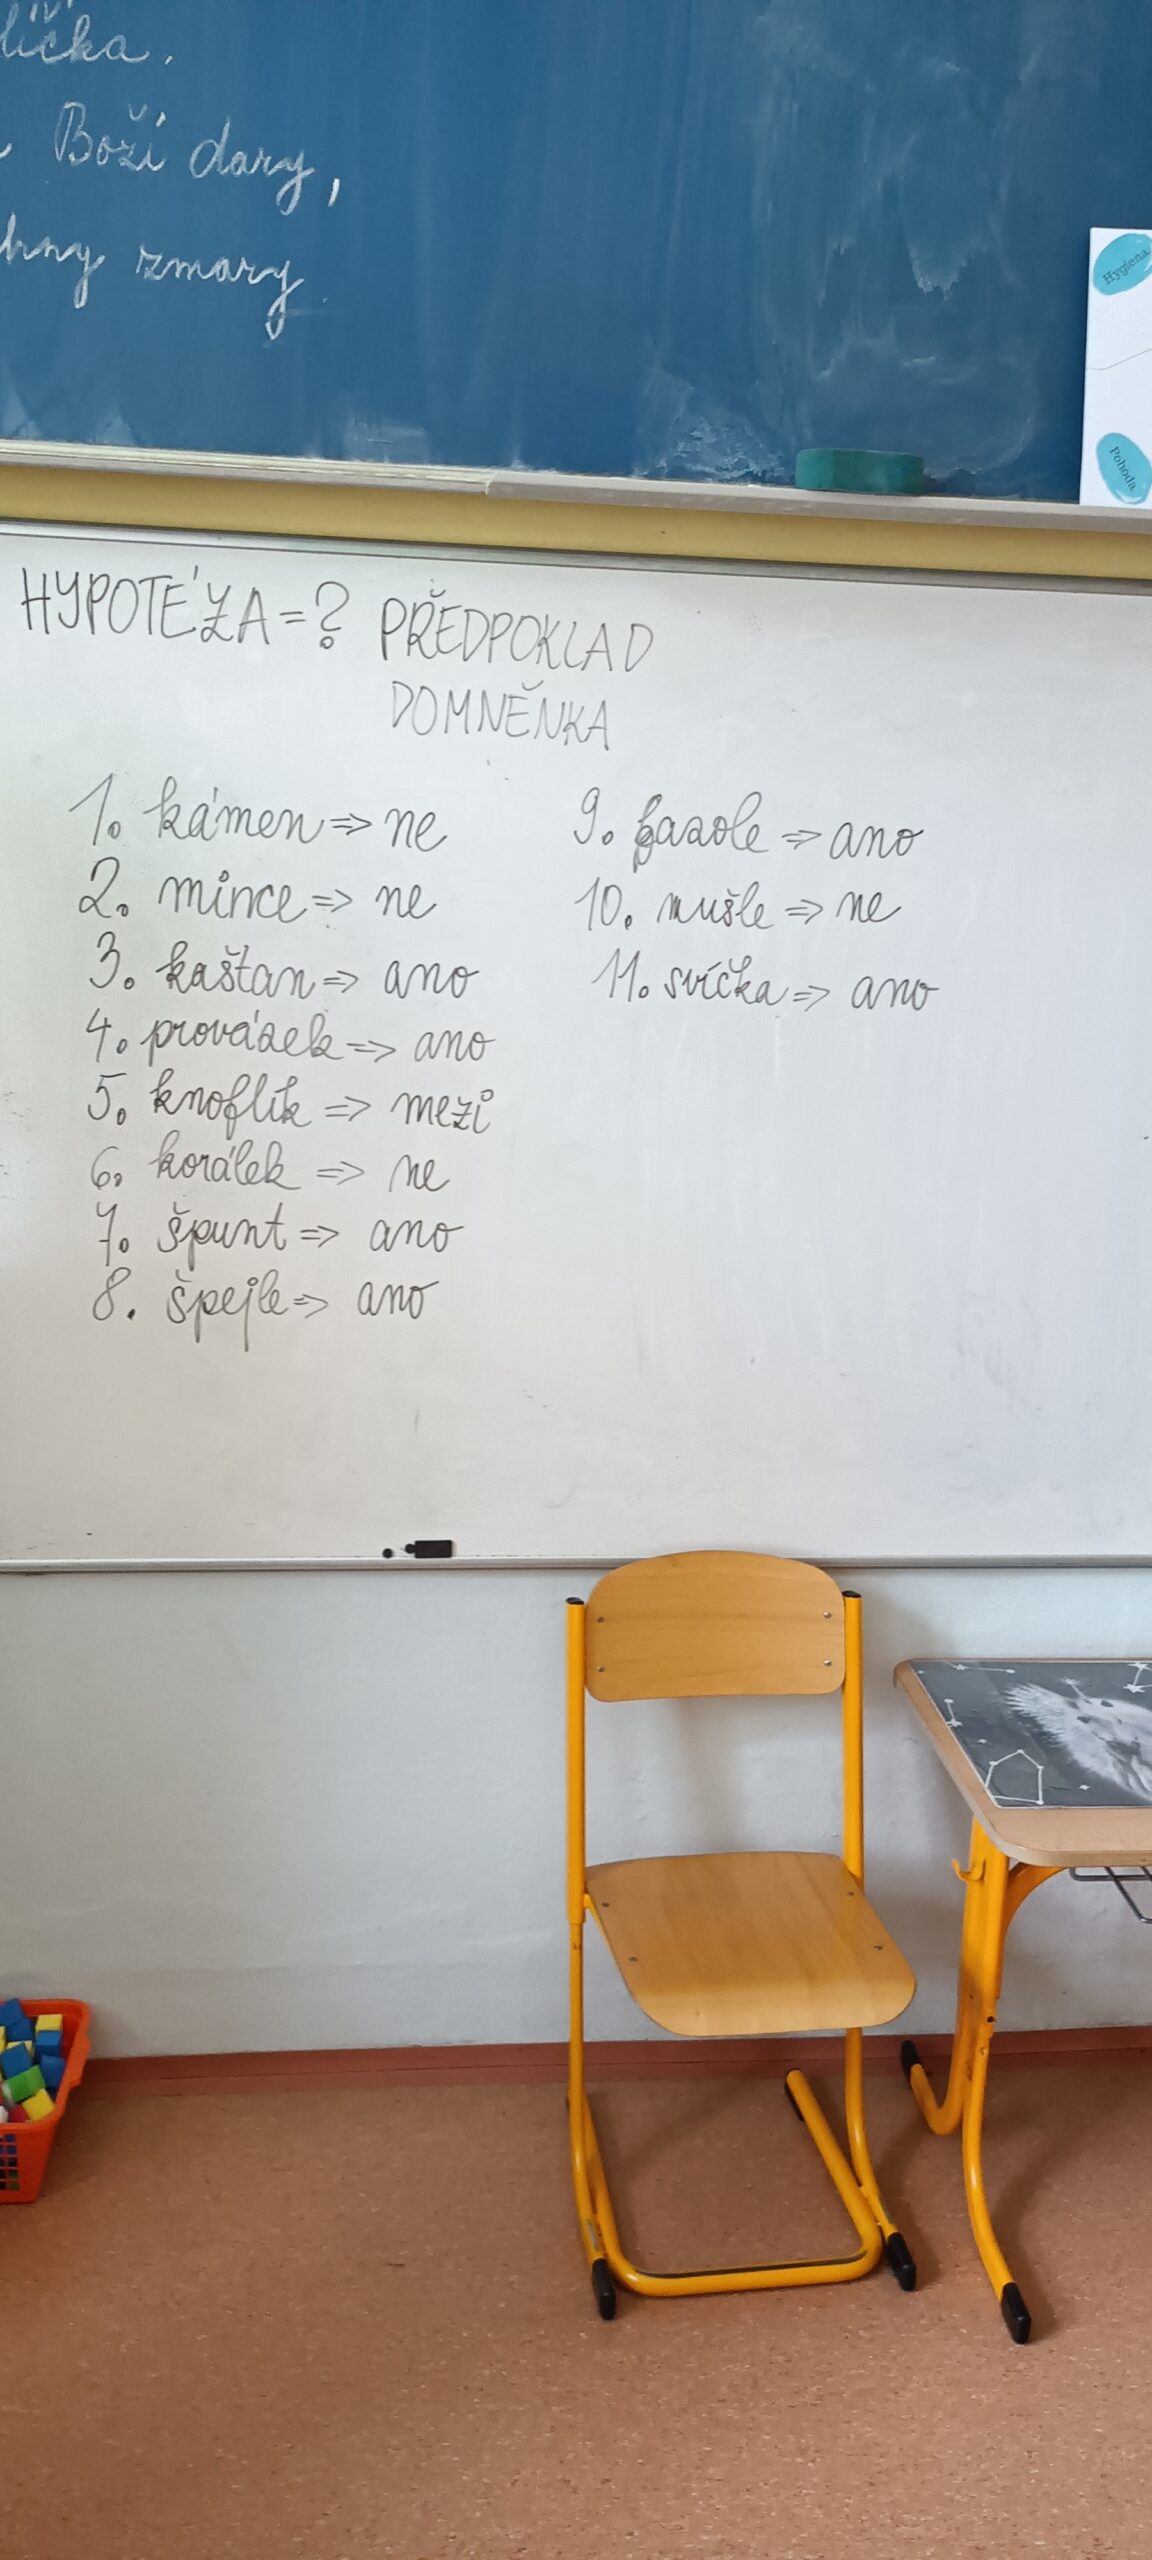 lička.
Boží dary,
zmary
Hygiena
Pohoda
HYPOTÉZA = ? PŘEDPOKLAD
DOMNĚNKA
1. kámen => ne
2. mince => ne
3. kaštan => ano
4. provázek => ano
5. knoflík => mezi
6. korálek => ne
7. špunt => ano
8. špejle => ano
9. fazole => ano
10. mušle => ne
11. svíčka => ano